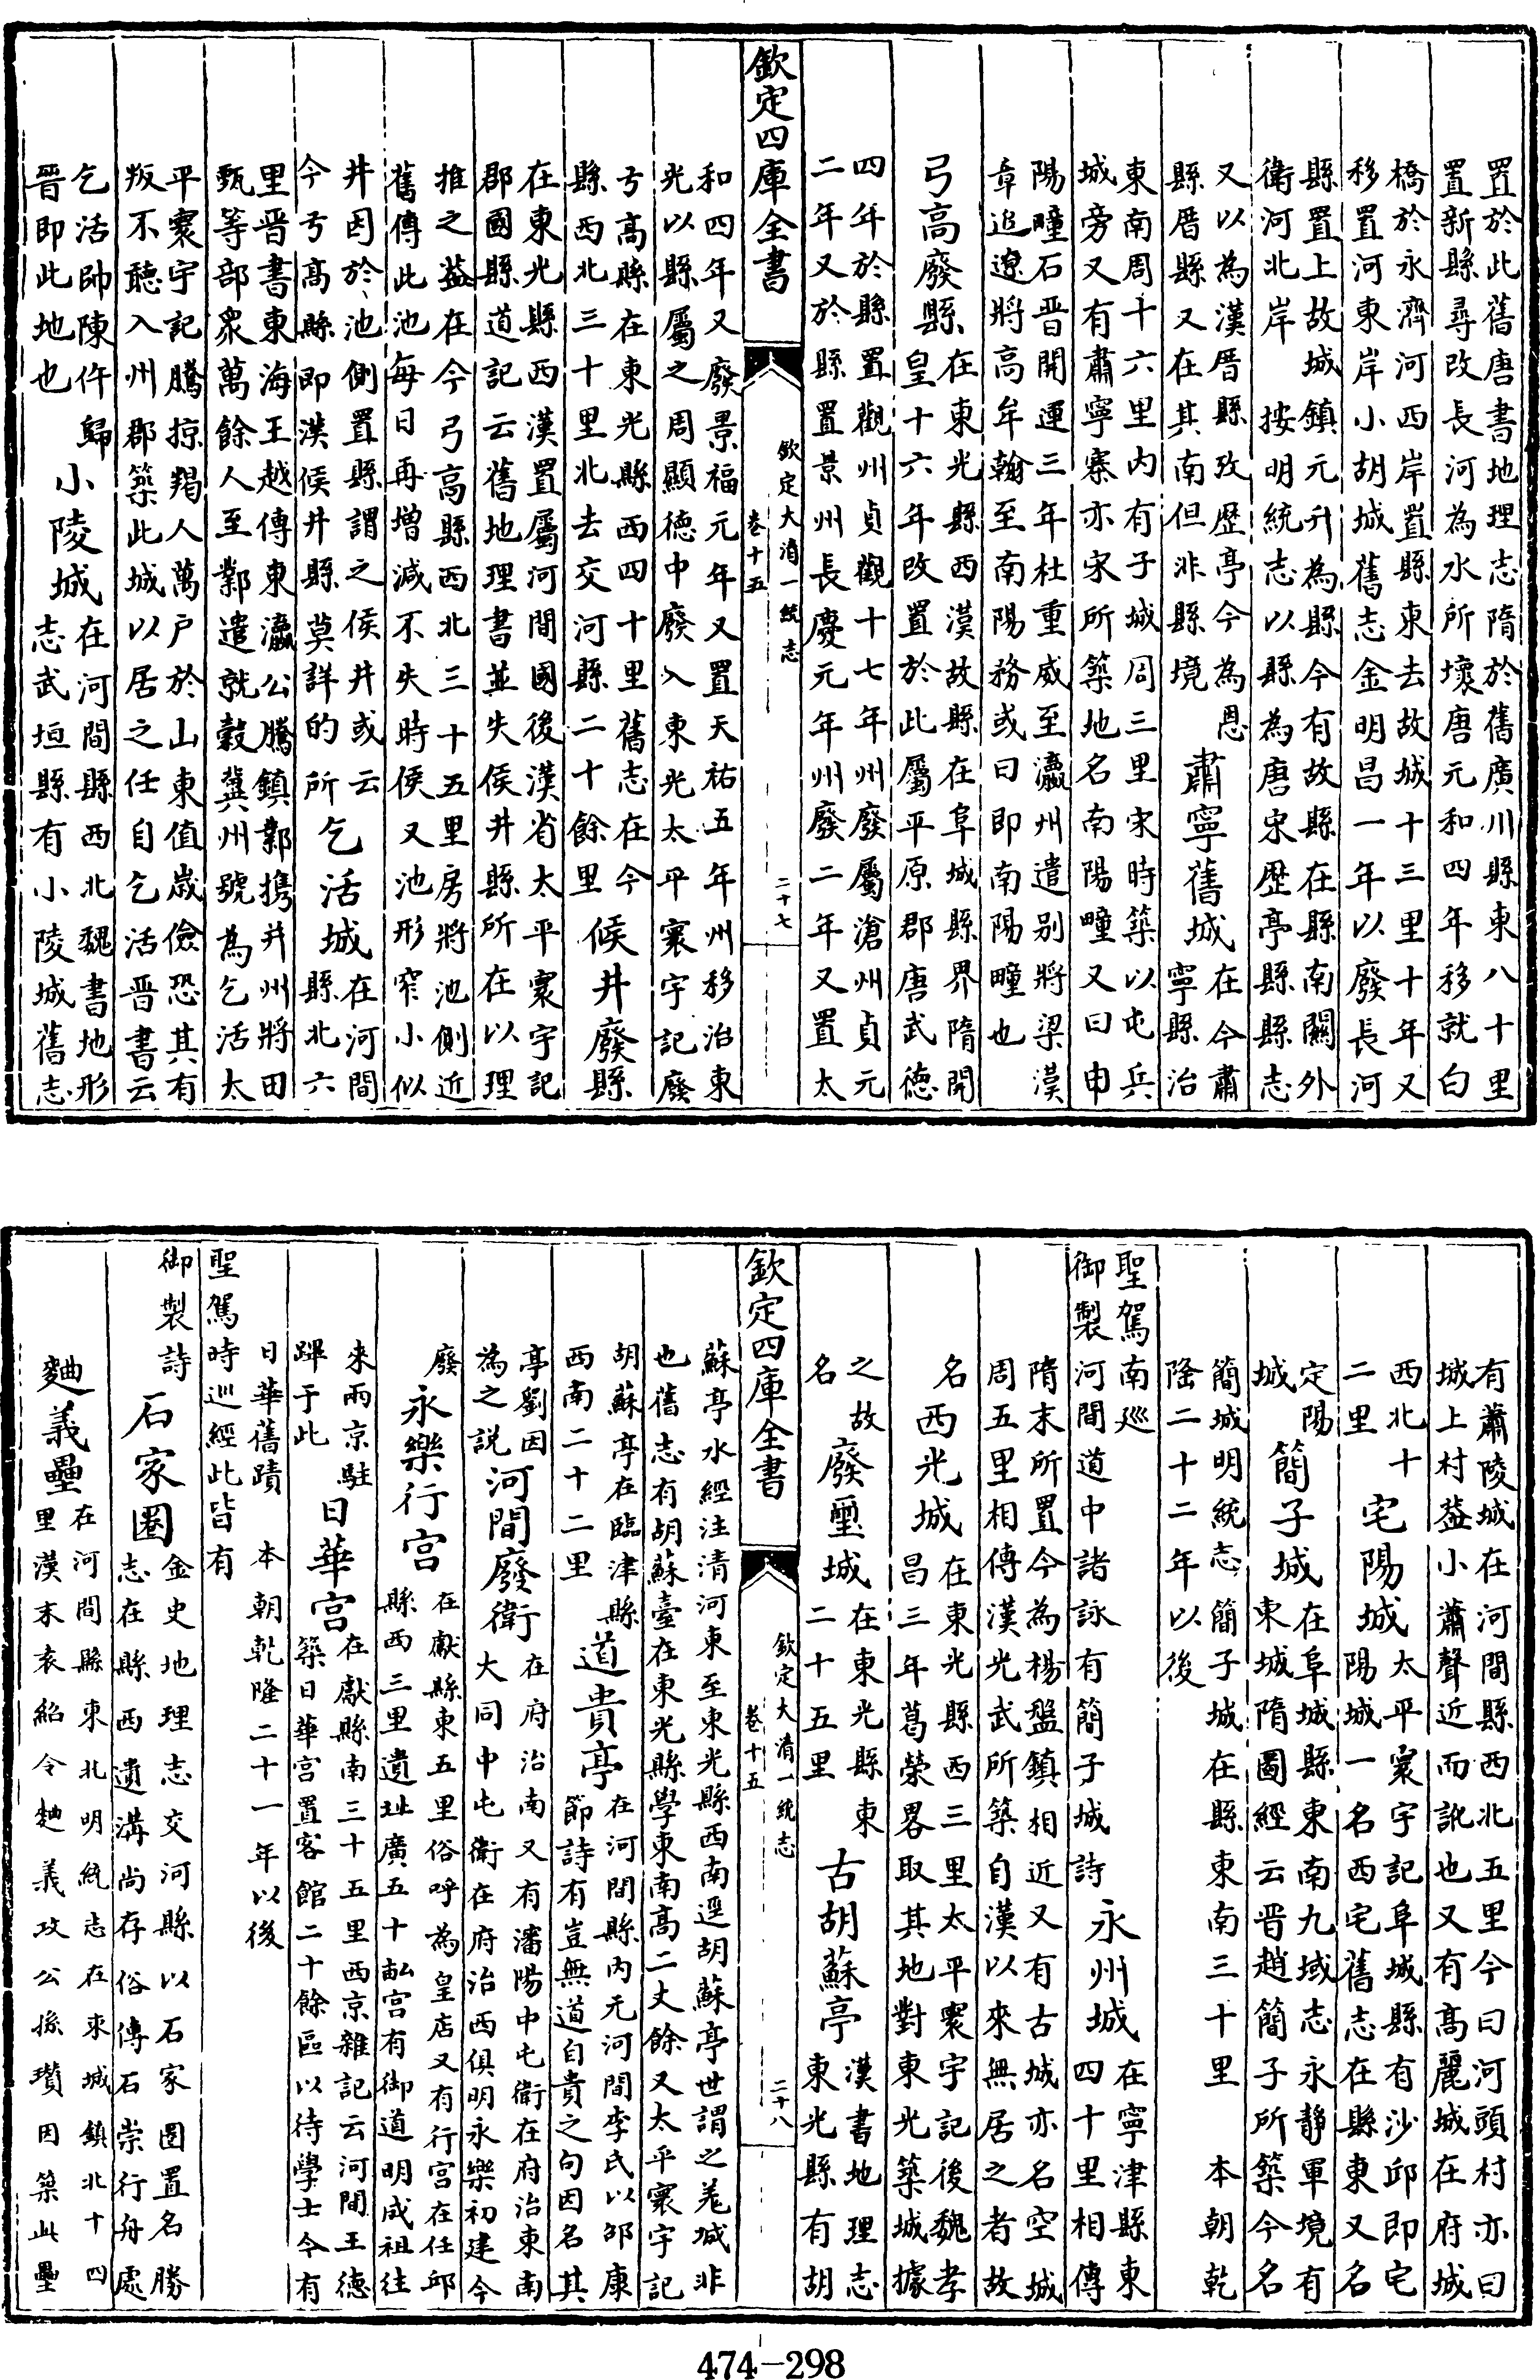 置於此舊唐書地理志隋於舊廣川縣東八十里
置新縣尋改長河為水所壞唐元和四年移就白
橋於永濟河西岸置縣東去故城十三里十年又
移置河東岸小胡城舊志金明昌一年以廢長河
縣置上故城鎮元升為縣今有故縣在縣南關外
衛河北岸　按明統志以縣為唐宋歷亭縣縣志
又以為漢厝縣攷歷亭今為恩
縣厝縣又在其南但非縣境
肅寧舊城
在今肅
寧縣治
東南周十六里内有子城周三里宋時築以屯兵
城旁又有肅寧寨亦宋所築地名南陽疃又曰申
陽疃石晉開運三年杜重威至瀛州遣别將梁漢
章追遼將高牟翰至南陽務或曰即南陽疃也
弓高廢縣
在東光縣西漢故縣在阜城縣界隋開
皇十六年改置於此屬平原郡唐武德
四年於縣置觀州貞觀十七年州廢屬滄州貞元
二年又於縣置景州長慶元年州廢二年又置太
欽定四庫全書
欽定大清一統志
卷十五
二十七
和四年又廢景福元年又置天祐五年州移治東
光以縣屬之周顯德中廢入東光太平寰宇記廢
弓高縣在東光縣西四十里舊志在今
縣西北三十里北去交河縣二十餘里
候井廢縣
在東光縣西漢置屬河間國後漢省太平寰宇記
郡國縣道記云舊地理書並失侯井縣所在以理
推之葢在今弓高縣西北三十五里房將池側近
舊傳此池每日再增減不失時侯又池形窄小似
井因於池側置縣謂之侯井或云
今弓高縣即漢侯井縣莫詳的所
乞活城
在河間
縣北六
里晉書東海王越傳東瀛公騰鎮鄴攜并州將田
甄等部衆萬餘人至鄴遣就穀冀州號為乞活太
平寰宇記騰掠羯人萬户於山東值歲儉恐其有
叛不聽入州郡築此城以居之任自乞活晉書云
乞活帥陳仵歸
晉即此地也
小陵城
在河間縣西北魏書地形
志武垣縣有小陵城舊志
有蕭陵城在河間縣西北五里今曰河頭村亦曰
城上村葢小蕭聲近而訛也又有高麗城在府城
西北十
二里
宅陽城
太平寰宇記阜城縣有沙邱即宅
陽城一名西宅舊志在縣東又名
定陽
城
簡子城
在阜城縣東南九域志永靜軍境有
東城隋圖經云晉趙簡子所築今名
簡城明統志簡子城在縣東南三十里　本朝乾
隆二十二年以後
聖駕南巡
御製河間道中諸詠有簡子城詩
永州城
在寧津縣東
四十里相傳
隋末所置今為楊盤鎮相近又有古城亦名空城
周五里相傳漢光武所築自漢以來無居之者故
名
西光城
在東光縣西三里太平寰宇記後魏孝
昌三年葛榮畧取其地對東光築城據
之故
名
廢壐城
在東光縣東
二十五里
古胡蘇亭
漢書地理志
東光縣有胡
欽定四庫全書
欽定大清一統志
卷十五
二十八
蘇亭水經注清河東至東光縣西南逕胡蘇亭世謂之羗城非
也舊志有胡蘇臺在東光縣學東南高二丈餘又太平寰宇記
胡蘇亭在臨津縣
西南二十二里
道貴亭
在河間縣内元河間李氏以邵康
節詩有豈無道自貴之句因名其
亭劉因
為之説
河間廢衛
在府治南又有瀋陽中屯衛在府治東南
大同中屯衛在府治西俱明永樂初建今
廢
永樂行宮
在獻縣東五里俗呼為皇店又有行宮在任邱
縣西三里遺址廣五十畝宮有御道明成祖往
來兩京駐
蹕于此
日華宮
在獻縣南三十五里西京雜記云河間王德
築日華宮置客館二十餘區以待學士今有
日華舊蹟　本朝乾隆二十一年以後
聖駕時巡經此皆有
御製詩
石家圏
金史地理志交河縣以石家圏置名勝
志在縣西遺溝尚存俗傳石崇行舟處
麯義壘
在河間縣東北明統志在束城鎮北十四
里漢末袁紹令麯義攻公孫瓚因築此壘
474-298